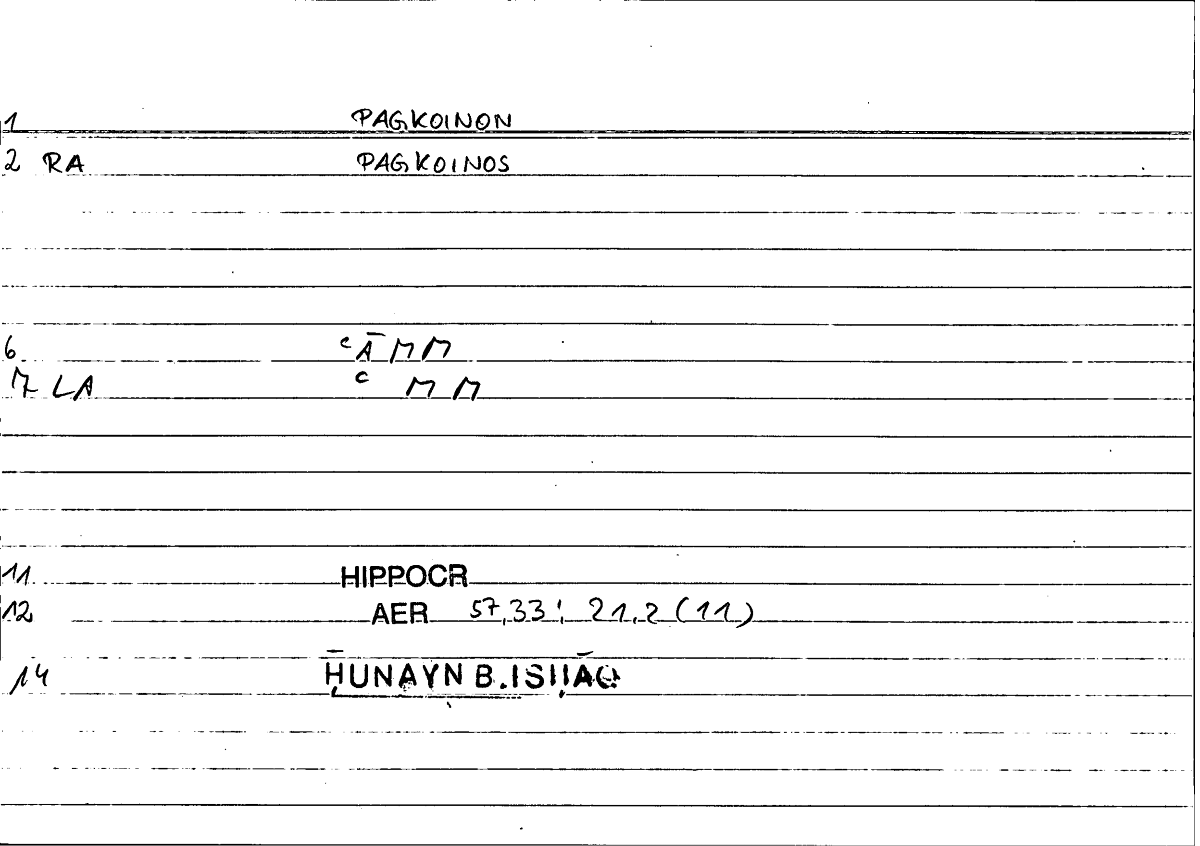 1 PAGKOINON
2 RA PAGKOINOS
6 ᶜĀMM
7 LA ᶜ MM
11 HIPPOCR
12 AER 57,33; 21,2 (11)
14 ḤUNAYN B.ISḤĀQ